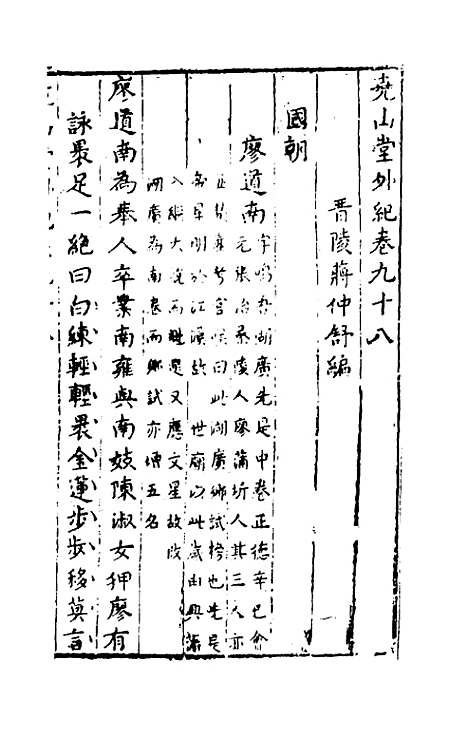 堯山堂外紀卷九十八
晉陵蔣仲舒編
國朝
廖道南
字鳴吾湖廣先是中卷正德辛巳會
元張治茶陵人廖蒲圻人其三人亦
曰此湖廣鄉試榜也先是
帝星明於江漢故世廟以此歲由興藩
入繼大統而又應文星故改
湖廣為南衷而鄉試亦增五名
廖道南為舉人卒業南雍與南妓陳淑女狎廖有
詠裹足一絕曰白練輕輕裹金蓮步步移莫言